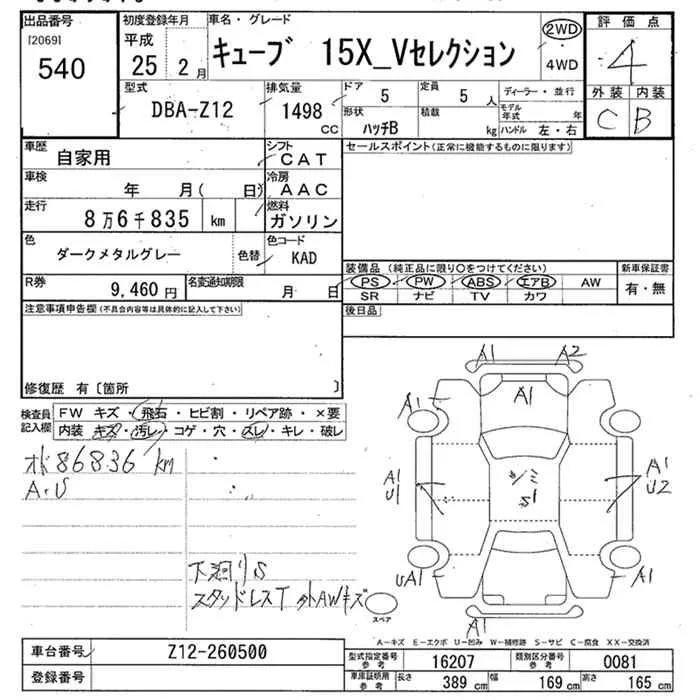 出品番号
[2069]
540
初度登録年月
平成
25年 2月
車名・グレード
キューブ 15X_Vセレクション
2WD
・
4WD
評価点
4
外装 内装
C B
型式
DBA-Z12
排気量
1498
CC
ドア 5
形状 ハッチB
定員 5 人
積載 kg
ディーラー・並行
モデル年式 年
ハンドル 左・右
車歴
自家用
シフト
CAT
車検
年 月( 日)
冷房
AAC
走行
8万6千835 km
燃料
ガソリン
色
ダークメタルグレー
色替
色コード
KAD
R券
9,460 円
名変通知期限
月 日
セールスポイント(正常に機能するものに限ります)
装備品 (純正品に限り○をつけてください)
PS PW ABS エアB AW
SR ナビ TV カワ
新車保証書
有・無
後日品
注意事項申告欄(不具合内容等は具体的に記入して下さい)
修復歴 有〔箇所 〕
検査員記入欄
FW キズ・飛石・ヒビ割・リペア跡・×要
内装 キズ・汚レ・コゲ・穴・スレ・キレ・破レ
86836 km
A・U
下廻りS
スタッドレスT 外AWキズ
A1 A2
A1
A1
A1
U1
S1
A1
U2
UA1
A1
A1
スペア
A-キズ E-エクボ U-凹み W-補修跡 S-サビ C-腐食 XX-交換済
車台番号 Z12-260500
登録番号
型式指定番号
参考
16207
類別区分番号
参考
0081
車庫証明用
参考
長さ 389 cm 幅 169 cm 高さ 165 cm